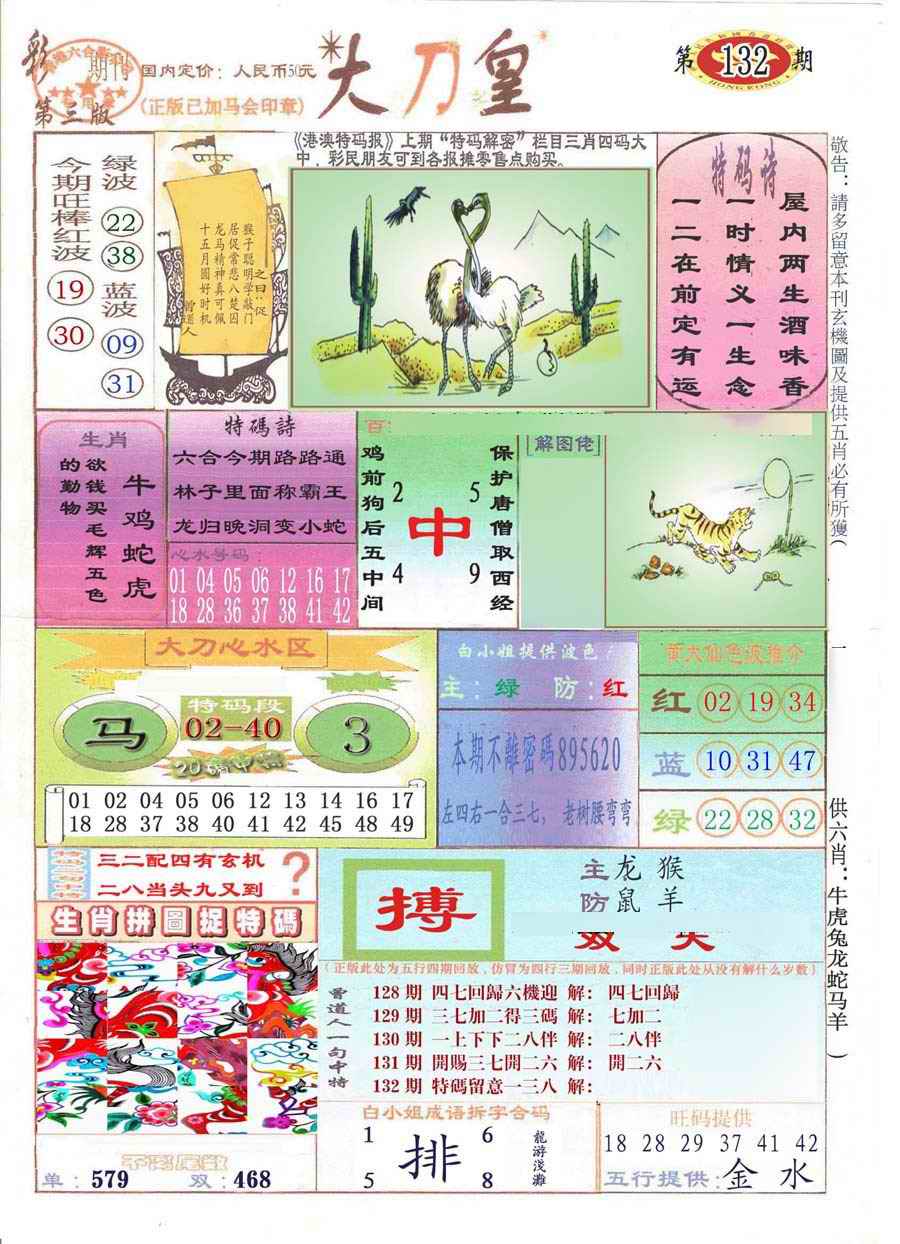 彩
期刊
第三版
国内定价：人民币50元
(正版已加马会印章)
大刀皇
第 132 期
HONG KONG
今期旺棒红波
19
30
绿波
22
38
蓝波
09
31
之曰：促
猴子聪明学敲门
居促常悲八楚囚
龙马精神真可佩
十五月圆好时机
曾道人
《港澳特码报》上期“特码解密”栏目三肖四码大
中，彩民朋友可到各报摊零售点购买。
特码诗
屋内两生酒味香
一时情义一生念
一二在前定有运
敬告：請多留意本刊玄機圖及提供五肖必有所獲(
生肖
牛鸡蛇虎
欲钱买毛辉五色
的勤物
特碼詩
六合今期路路通
林子里面称霸王
龙归晚洞变小蛇
心水号码：
01 04 05 06 12 16 17
18 28 36 37 38 41 42
鸡前狗后五中间
2 5
中
4 9
保护唐僧取西经
解图佬
大刀心水区
马
特码段
02-40
3
20碼中特
01 02 04 05 06 12 13 14 16 17
18 28 37 38 40 41 42 45 48 49
白小姐提供波色
主：绿 防：红
本期不離密碼895620
左四右一合三七，老树腰弯弯
黄大仙色波推介
红 02 19 34
蓝 10 31 47
绿 22 28 32
一
供六肖：牛虎兔龙蛇马羊 )
三二配四有玄机
二八当头九又到
?
生肖拼圖捉特碼
搏
主龙 猴
防鼠 羊
(正版此处为五行四期回放，仿冒为四行三期回放，同时正版此处从没有解什么岁数)
曾道人一句中特
128期 四七回歸六機迎 解： 四七回歸
129期 三七加二得三碼 解： 七加二
130期 一上下下二八伴 解： 二八伴
131期 開賜三七開二六 解： 開二六
132期 特碼留意一三八 解：
单：579 双：468
白小姐成语拆字合码
1 6
排
5 8
龍游浅灘
旺码提供
18 28 29 37 41 42
五行提供：金 水